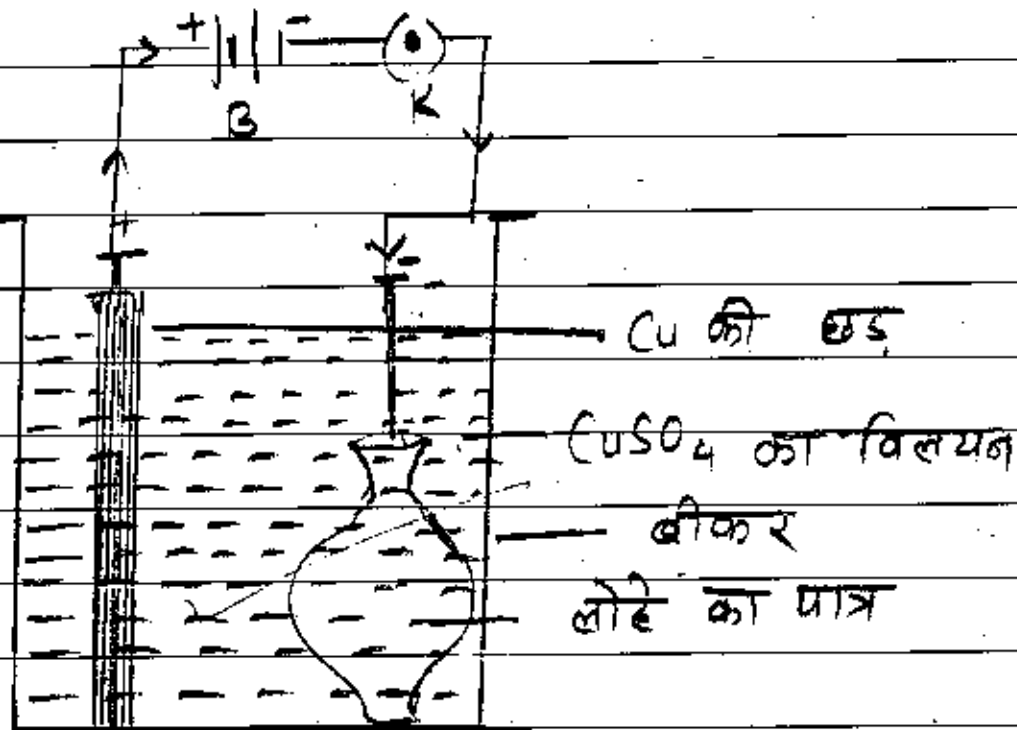 + -
B K
+ -
Cu की छड़
CuSO4 का विलयन
बीकर
लोहे का पात्र